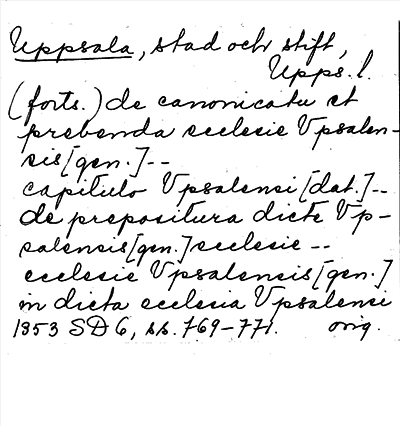 Uppsala, stad och stift,
Upps. l.
(forts.) de canonicatu et
prebenda ecclesie Vpsalen-
sis [gen.] --
capitulo Vpsalensi [dat.] --
de prepositura dicte Vp-
salensis [gen.] ecclesie --
ecclesie Vpsalensis [gen.]
in dicta ecclesia Vpsalensi
1353 SD 6, ss. 769-771. orig.